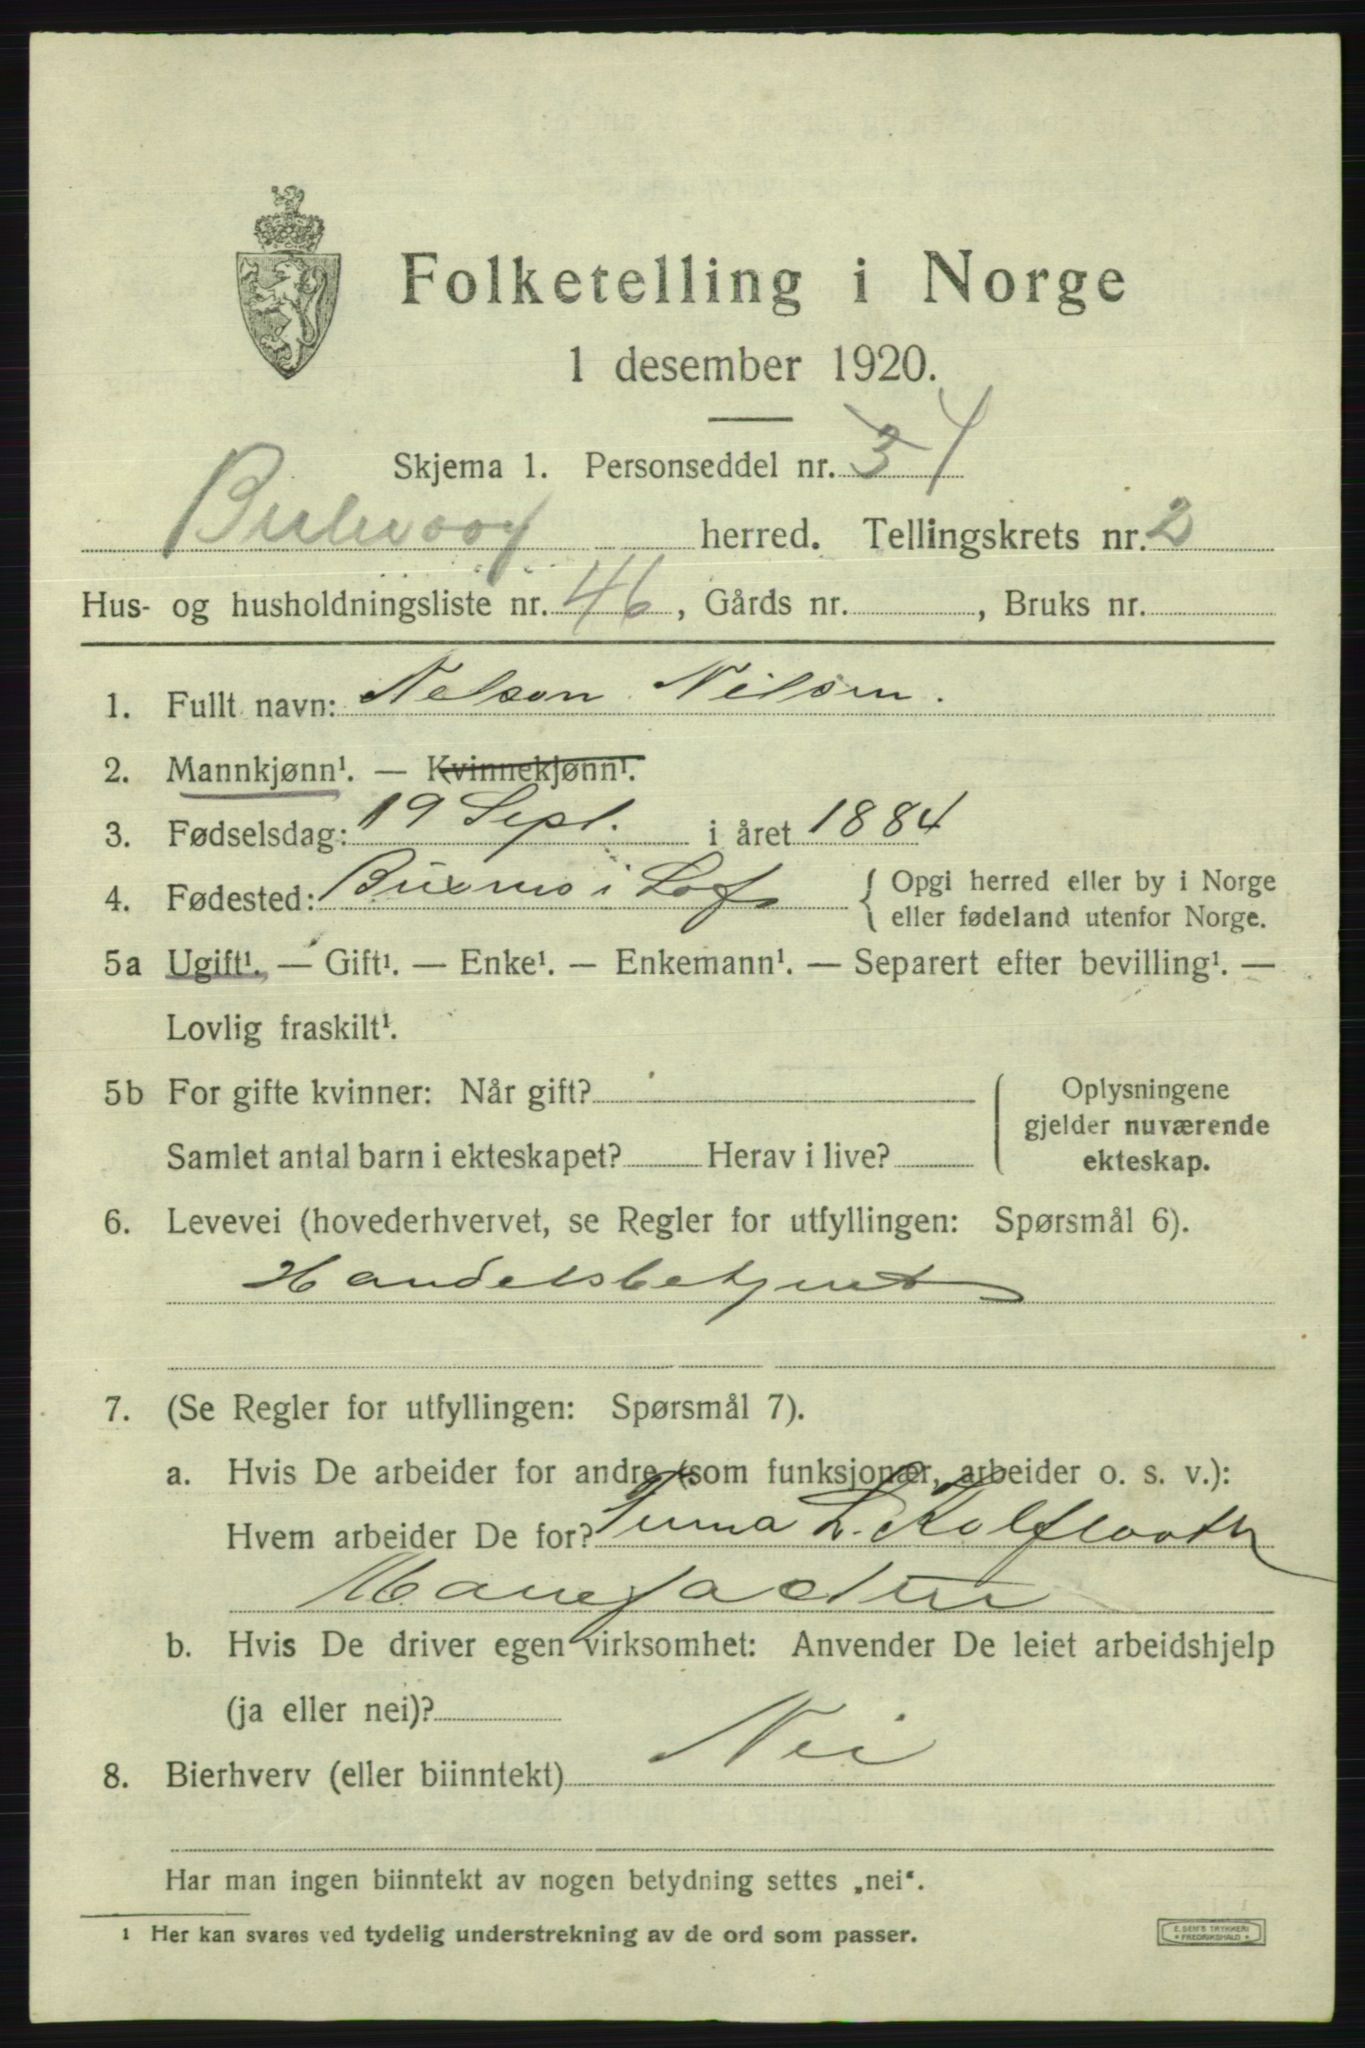 Folketelling i Norge
1 desember 1920.
Skjema 1. Personseddel nr. 3 4
herred. Tellingskrets nr. 2
Hus- og husholdningsliste nr. 46, Gårds nr. , Bruks nr.
1. Fullt navn: Nelson Nilsen.
2. Mannkjønn¹. — Kvinnekjønn¹.
3. Fødselsdag: 19 Sept. i året 1884
4. Fødested: i Lof { Opgi herred eller by i Norge
eller fødeland utenfor Norge.
5a Ugift¹. — Gift¹. — Enke¹. — Enkemann¹. — Separert efter bevilling¹. —
Lovlig fraskilt¹.
5b For gifte kvinner: Når gift?
Samlet antal barn i ekteskapet? Herav i live?
Oplysningene
gjelder nuværende
ekteskap.
6. Levevei (hovederhvervet, se Regler for utfyllingen: Spørsmål 6).
Handelsbetjent
7. (Se Regler for utfyllingen: Spørsmål 7).
a. Hvis De arbeider for andre (som funksjonær, arbeider o. s. v.):
Hvem arbeider De for? Firma L.
b. Hvis De driver egen virksomhet: Anvender De leiet arbeidshjelp
(ja eller nei)?
8. Bierhverv (eller biinntekt) Nei
Har man ingen biinntekt av nogen betydning settes „nei“.
¹ Her kan svares ved tydelig understrekning av de ord som passer.
E. SEM'S TRYKKERI
* FREDRIKSHALD *